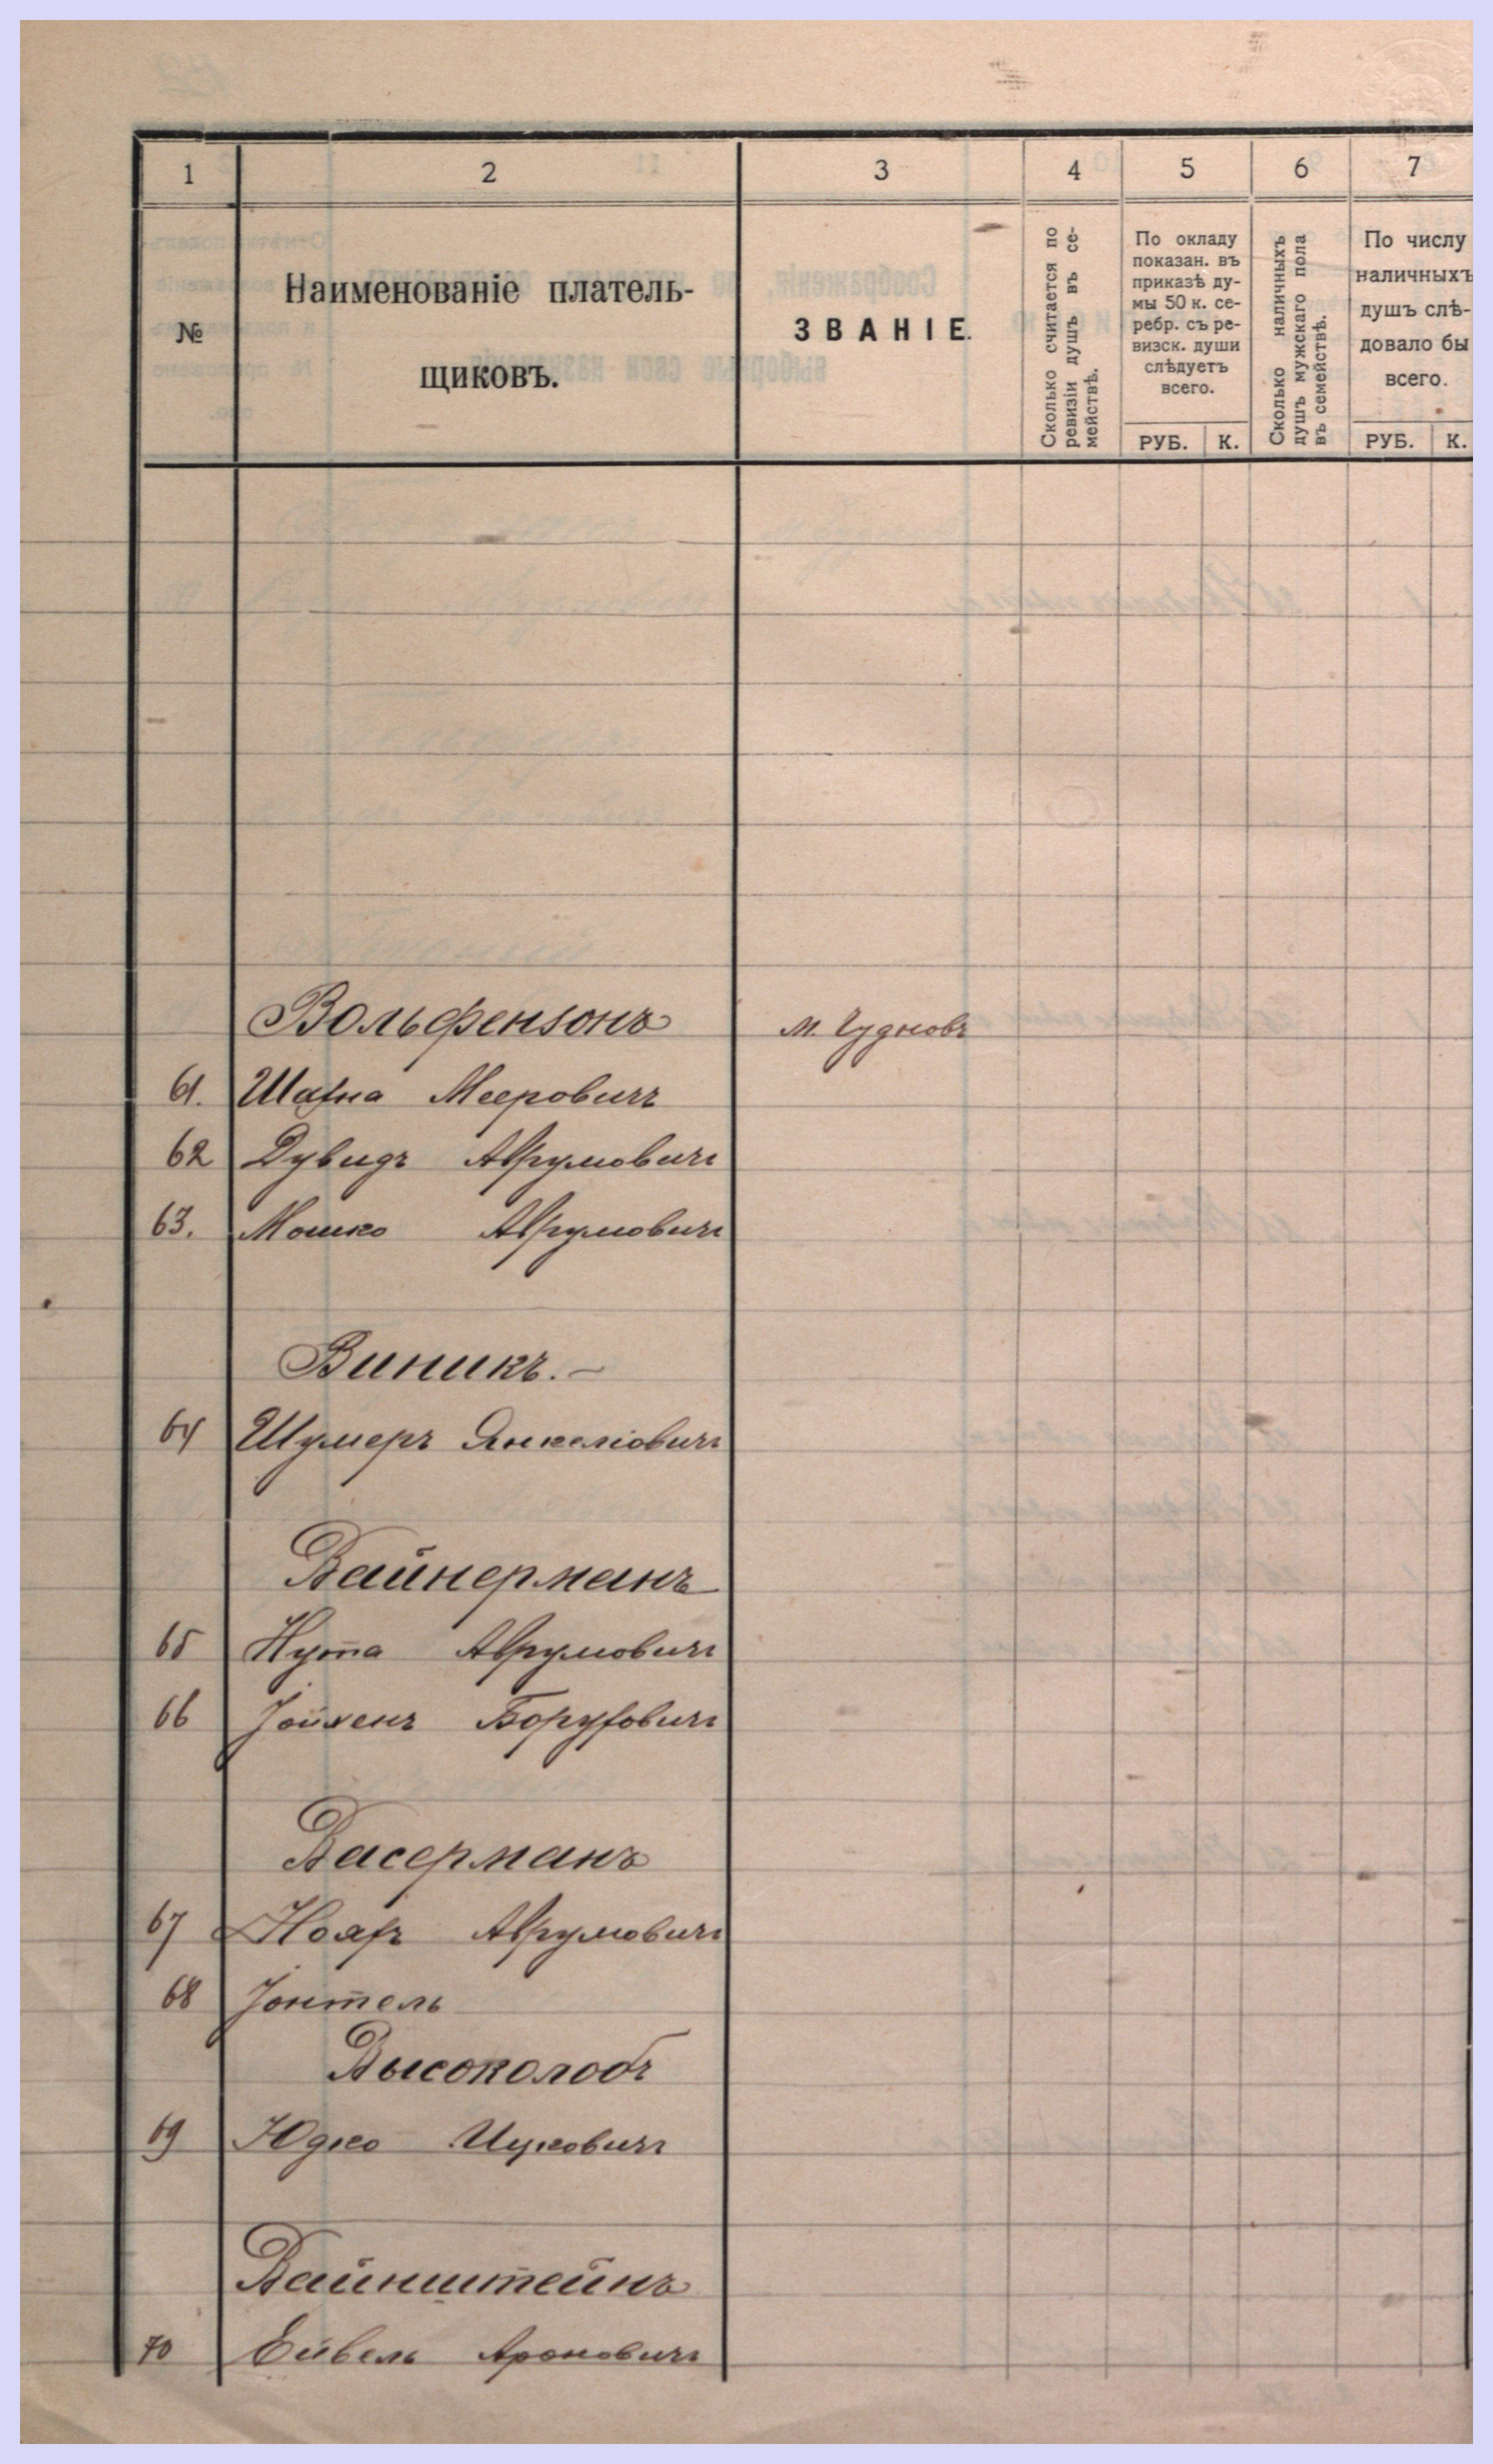 1 2 3 4 5 6 7
№
Наименованіе платель-
щиковъ.
ЗВАНІЕ.
Сколько считается по
ревизіи душъ въ се-
мействѣ.
По окладу
показан. въ
приказѣ ду-
мы 50 к. се-
ребр. съ ре-
визск. души
слѣдуетъ
всего.
РУБ. К.
Сколько наличныхъ
душъ мужскаго пола
въ семействѣ.
По числу
наличныхъ
душъ слѣ-
довало бы
всего.
РУБ. К.
Вольфензонъ м. Чудновъ
61. Шахна Мееровичъ
62 Дувидъ Аврумовичъ
63. Мошко Аврумовичъ
Виникъ.-
64 Шумеръ Янкеліовичъ
Вайнерманъ
65 Нута Аврумовичъ
66 Іойхенъ Боруховичъ
Васерманъ
67 Ноахъ Аврумовичъ
68 Іонтель
Высоколобъ
69 Юдко Ицковичъ
Вайнштейнъ
70 Ейвель Ароновичъ